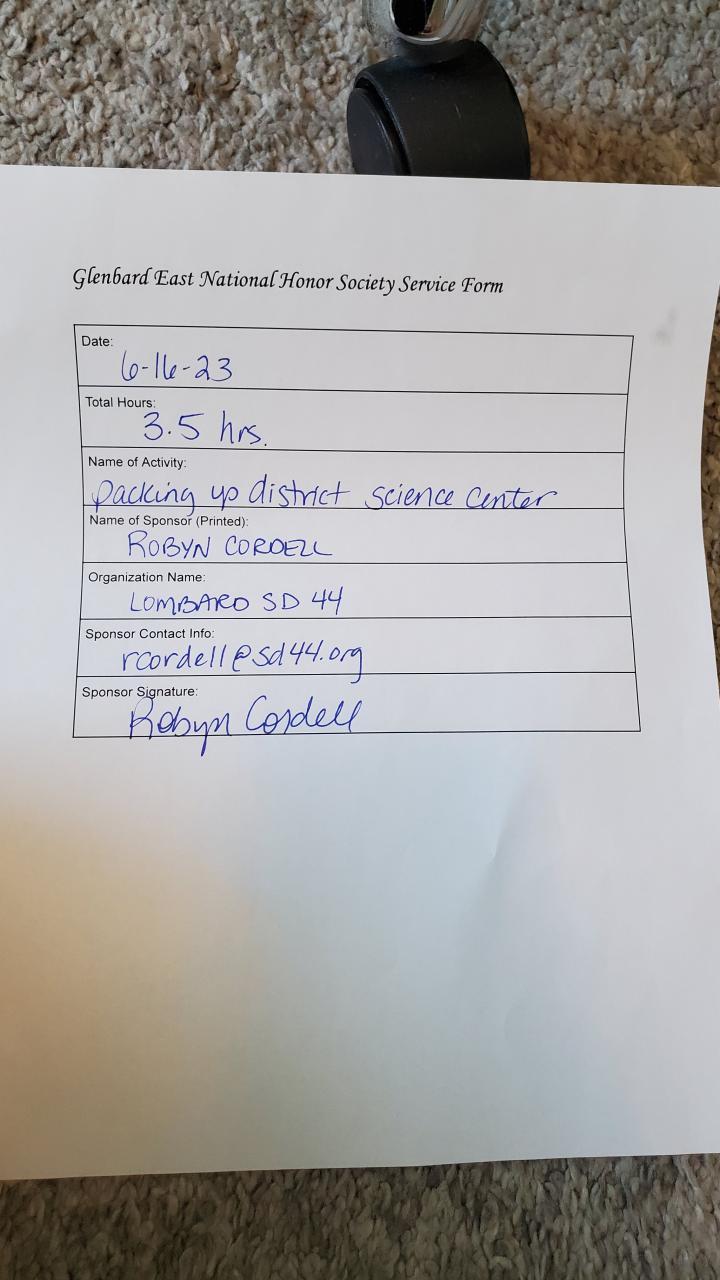 Glenbard East National Honor Society Service Form
Date:
6-16-23
Total Hours:
3.5 hrs.
Name of Activity:
packing up district science center
Name of Sponsor (Printed):
ROBYN CORDELL
Organization Name:
LOMBARD SD 44
Sponsor Contact Info:
rcordell@sd44.org
Sponsor Signature:
Robyn Cordell